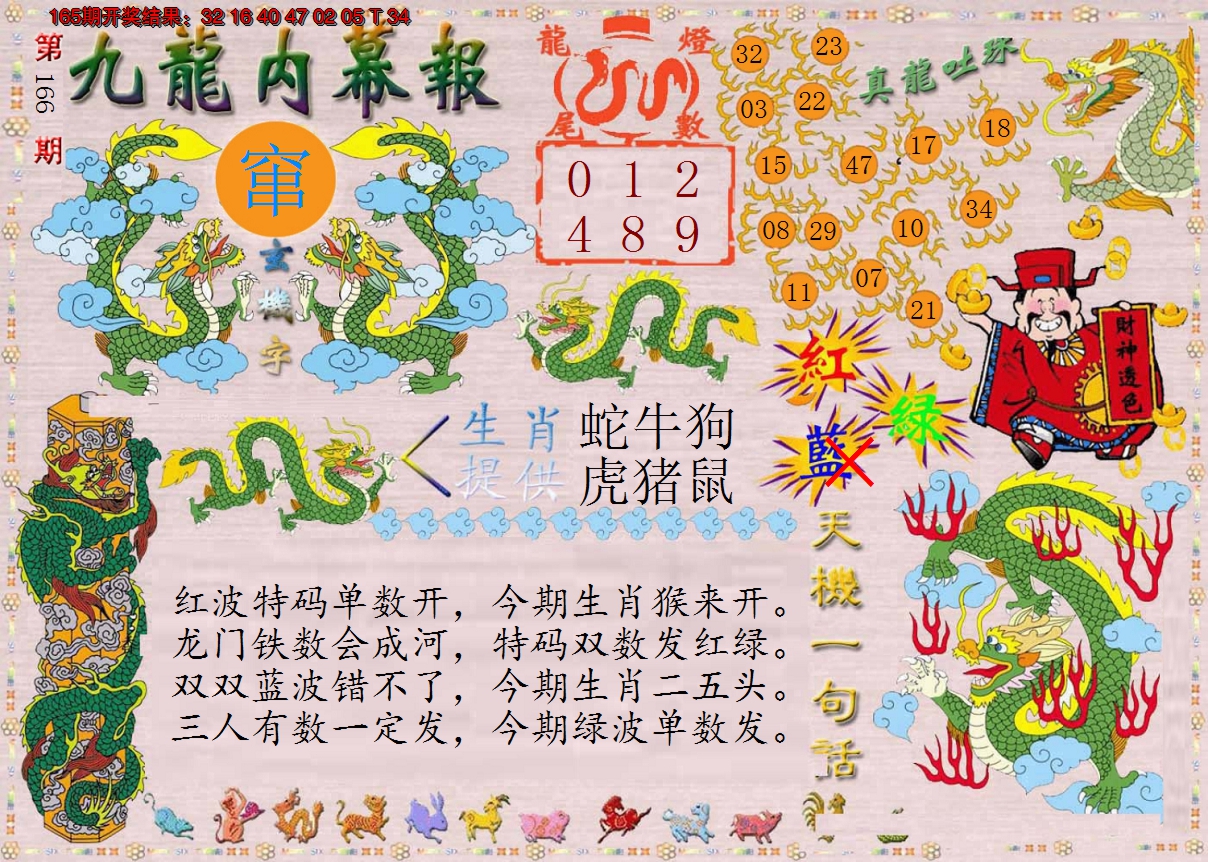 165期开奖结果：32 16 40 47 02 05 T 34
第166期
九龍内幕報
龍燈
尾數
0 1 2
4 8 9
真龍吐珠
32
23
03
22
15
47
17
18
08
29
10
34
11
07
21
窜
玄機字
財神透色
紅
绿
藍
生肖提供
蛇牛狗
虎猪鼠
天機一句話
红波特码单数开，今期生肖猴来开。
龙门铁数会成河，特码双数发红绿。
双双蓝波错不了，今期生肖二五头。
三人有数一定发，今期绿波单数发。